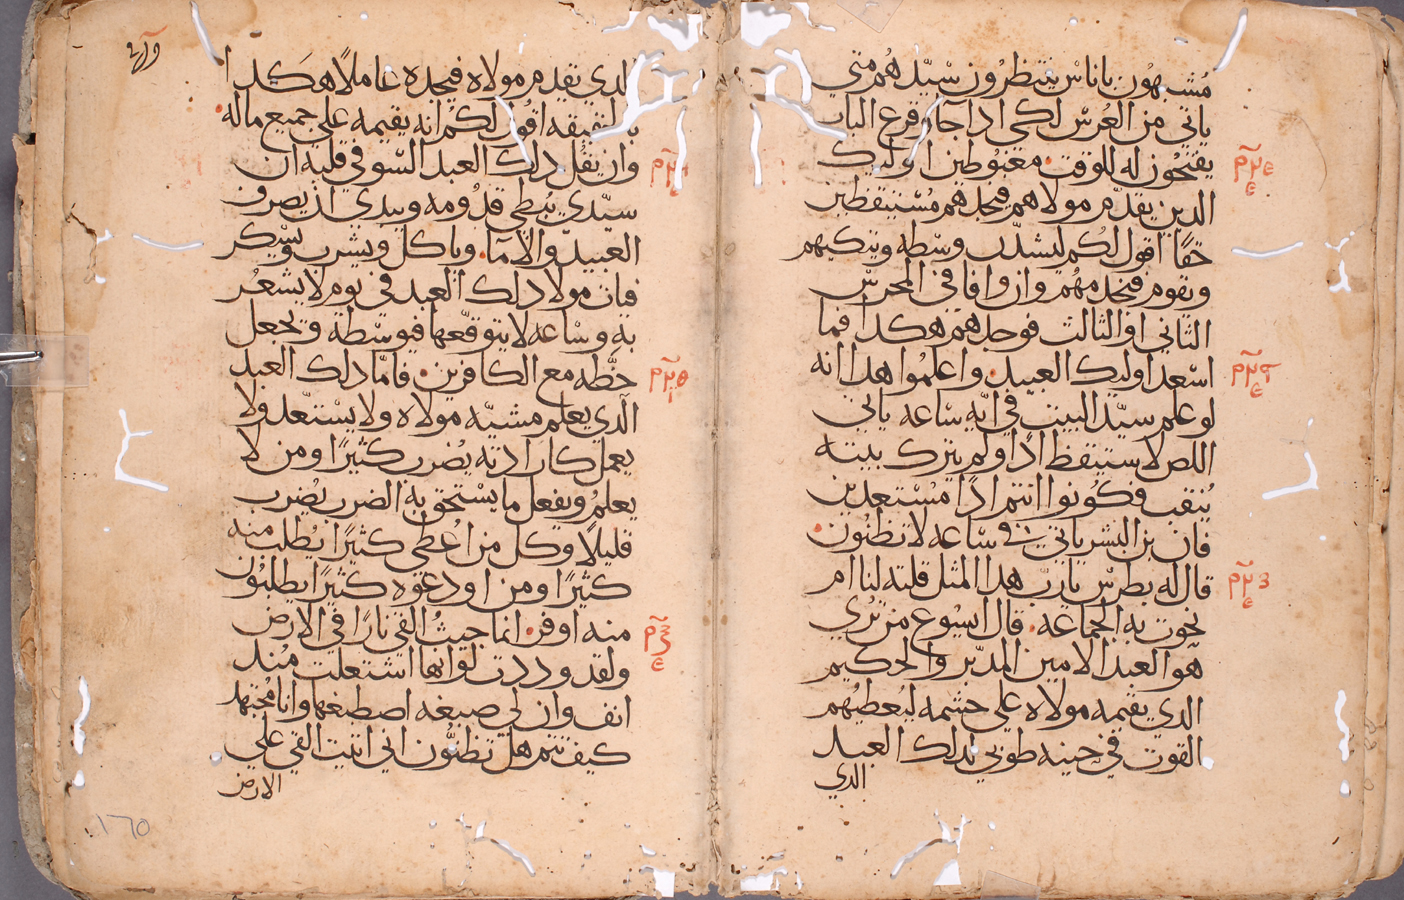 مُشبهون باناس ينتظرون سيّدهم متي
ياتي من العُرس لكي اذا جآ وقرع الباب
يفتحون له للوقت. مغبوطين اوليك
الدين يقدم مولاهم فيجدهم مُستيقظين
حقًا اقول لكم ليشدّن وسطه ويتكيهم
ويقوم فيخدمهم وان وافا في المحرس
التاني او التالت فوجدهم هكدا فما
اسعد اوليك العبيد. واعلموا هدا انه
لو علم سيّد البيت في ايّه ساعه ياتي
اللص لاستيقظ ادًا ولم يترك بيته
يُنقب فكونوا انتم ادًا مُستعدين
فان بن البشر ياتي في ساعه لا تظنون.
قال له بطرس يا ربّ هدا المتل قلته لنا ام
نحوت به الجماعه. قال ايسوع من تري
هو العبد الامين المدبّر والحكيم
الدي يقيمه مولاه علي حشمه ليُعطيُهم
القوت في حينه طوبي لدلك العبد
الدي
الدي يقدم مولاه فيجده عاملًا هكدا
بالحقيقه اقول لكم انه يقيمه علي جميع ماله.
وان يقُل دلك العبد السو في قلبه ان
سيّدي يبطي قدُومه ويبدي ان يصرف
العبيد والامآ. وياكل ويشرب ويسكر
فيات مولا دلك العبد في يوم لا يشعُر
به وساعه لا يتوقّعها فيوسّطه ويجعل
حظّه مع الكافرين. فامّا دلك العبد
الدي يعلم مشيّه مولاه ولا يستعد ولا
يعمل كارادته يُضرب كثيرًا ومن لا
يعلمُ ويفعل ما يستحق به الضرب يُضرب
قليلًا وكل من اُعطي كثيرًا يُطلب منه
كثيرًا ومن اودعوه كثيرًا يطلبُون
منه اوفر. انما جيتُ القي نارًا في الارض
ولقد وددت لو انها اشتعلت مُند
انف وان لي صبغه اصطبغها وانا مُجتهد
كيف تتم هل تظنُّون اني اتيت القي علي
الارض
١٦٥